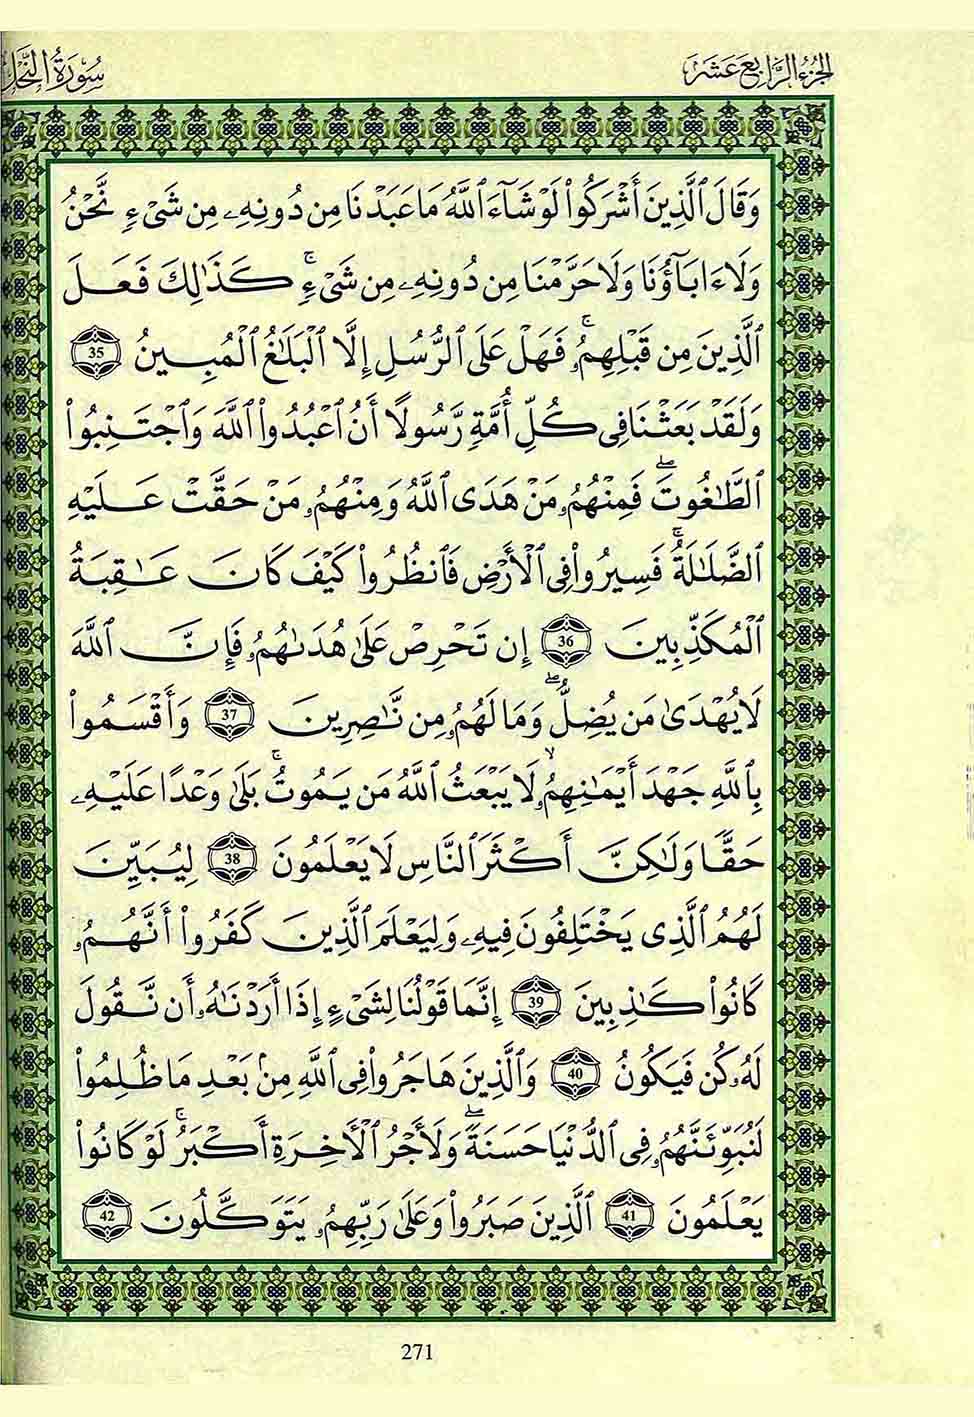 الجزء الرابع عشر
سورة النحل
وَقَالَ ٱلَّذِينَ أَشْرَكُوا۟ لَوْ شَآءَ ٱللَّهُ مَا عَبَدْنَا مِن دُونِهِۦ مِن شَىْءٍۢ نَّحْنُ
وَلَآ ءَابَآؤُنَا وَلَا حَرَّمْنَا مِن دُونِهِۦ مِن شَىْءٍۢ ۚ كَذَٰلِكَ فَعَلَ
ٱلَّذِينَ مِن قَبْلِهِمُۥ ۚ فَهَلْ عَلَى ٱلرُّسُلِ إِلَّا ٱلْبَلَٰغُ ٱلْمُبِينُ 35
وَلَقَدْ بَعَثْنَا فِى كُلِّ أُمَّةٍۢ رَّسُولًا أَنُ ٱعْبُدُوا۟ ٱللَّهَ وَٱجْتَنِبُوا۟
ٱلطَّٰغُوتَ ۖ فَمِنْهُمُۥ مَنْ هَدَى ٱللَّهُ وَمِنْهُمُۥ مَنْ حَقَّتْ عَلَيْهِ
ٱلضَّلَٰلَةُ ۚ فَسِيرُوا۟ فِى ٱلْأَرْضِ فَٱنظُرُوا۟ كَيْفَ كَانَ عَٰقِبَةُ
ٱلْمُكَذِّبِينَ 36 إِن تَحْرِصْ عَلَىٰ هُدَىٰهُمُۥ فَإِنَّ ٱللَّهَ
لَا يُهْدَىٰ مَن يُضِلُّ ۖ وَمَا لَهُمُۥ مِن نَّٰصِرِينَ 37 وَأَقْسَمُوا۟
بِٱللَّهِ جَهْدَ أَيْمَٰنِهِمُۥ ۙ لَا يَبْعَثُ ٱللَّهُ مَن يَمُوتُ ۚ بَلَىٰ وَعْدًا عَلَيْهِۦ
حَقًّۭا وَلَٰكِنَّ أَكْثَرَ ٱلنَّاسِ لَا يَعْلَمُونَ 38 لِيُبَيِّنَ
لَهُمُ ٱلَّذِى يَخْتَلِفُونَ فِيهِۦ وَلِيَعْلَمَ ٱلَّذِينَ كَفَرُوا۟ أَنَّهُمُۥ
كَانُوا۟ كَٰذِبِينَ 39 إِنَّمَا قَوْلُنَا لِشَىْءٍ إِذَآ أَرَدْنَٰهُۥ أَن نَّقُولَ
لَهُۥ كُن فَيَكُونُ 40 وَٱلَّذِينَ هَاجَرُوا۟ فِى ٱللَّهِ مِنۢ بَعْدِ مَا ظُلِمُوا۟
لَنُبَوِّئَنَّهُمُۥ فِى ٱلدُّنْيَا حَسَنَةًۭ ۖ وَلَأَجْرُ ٱلْأَخِرَةِ أَكْبَرُ ۚ لَوْ كَانُوا۟
يَعْلَمُونَ 41 ٱلَّذِينَ صَبَرُوا۟ وَعَلَىٰ رَبِّهِمُۥ يَتَوَكَّلُونَ 42
271